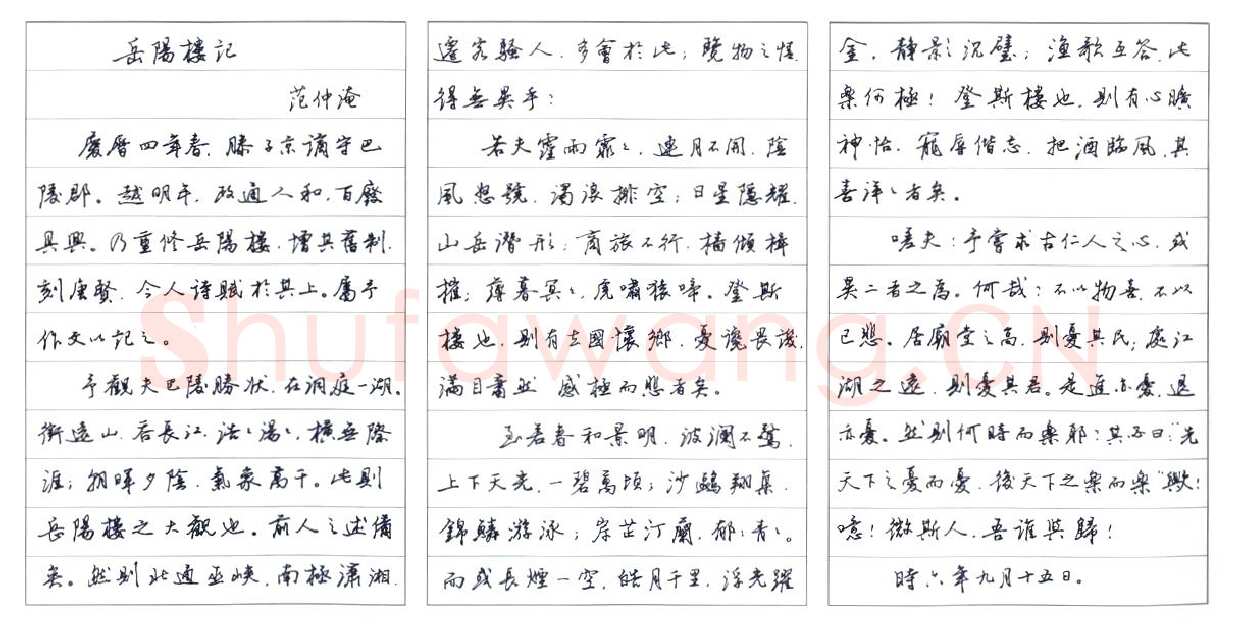 岳陽樓記
范仲淹
慶曆四年春，滕子京謫守巴
陵郡。越明年，政通人和，百廢
具興。乃重修岳陽樓，增其舊制，
刻唐賢、今人詩賦於其上。屬予
作文以記之。
予觀夫巴陵勝狀，在洞庭一湖。
銜遠山，吞長江，浩〻湯〻，橫無際
涯；朝暉夕陰，氣象萬千。此則
岳陽樓之大觀也。前人之述備
矣。然則北通巫峽，南極瀟湘，
遷客騷人，多會於此；覽物之情，
得無異乎？
若夫霪雨霏〻，連月不開，陰
風怒號，濁浪排空；日星隱耀，
山岳潛形；商旅不行，檣傾楫
摧；薄暮冥〻，虎嘯猿啼。登斯
樓也，則有去國懷鄉，憂讒畏譏，
滿目蕭然，感極而悲者矣。
至若春和景明，波瀾不驚，
上下天光，一碧萬頃；沙鷗翔集，
錦鱗游泳；岸芷汀蘭，郁〻青〻。
而或長煙一空，皓月千里，浮光躍
金，靜影沉璧；漁歌互答，此
樂何極！登斯樓也，則有心曠
神怡，寵辱偕忘，把酒臨風，其
喜洋〻者矣。
嗟夫！予嘗求古仁人之心，或
異二者之為。何哉？不以物喜，不以
己悲。居廟堂之高，則憂其民；處江
湖之遠，則憂其君。是進亦憂，退
亦憂。然則何時而樂耶？其必曰："先
天下之憂而憂，後天下之樂而樂"歟！
噫！微斯人，吾誰與歸！
時六年九月十五日。
Shufawang.CN